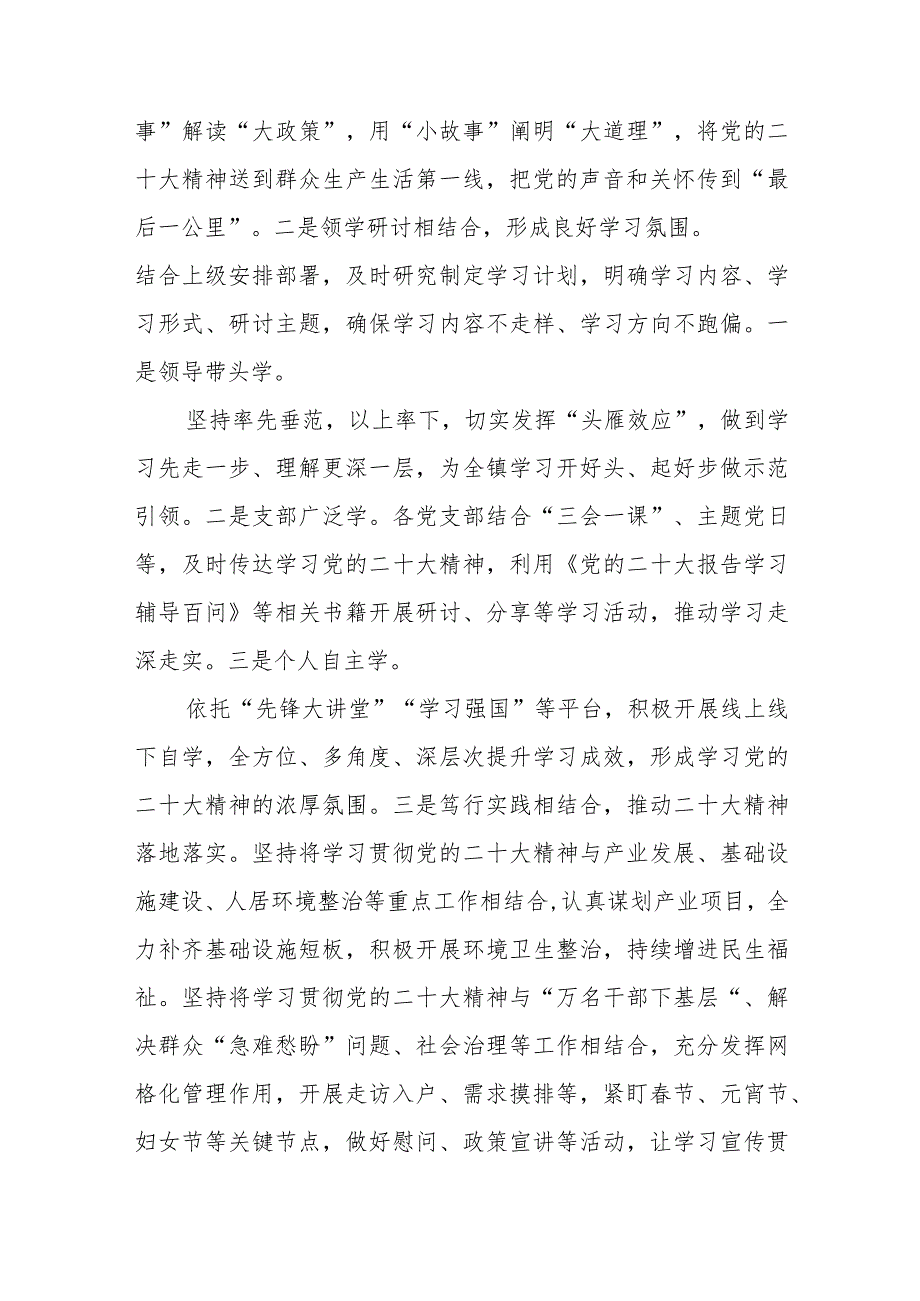 事”解读“大政策”，用“小故事”阐明“大道理”，将党的二
十大精神送到群众生产生活第一线，把党的声音和关怀传到“最
后一公里”。二是领学研讨相结合，形成良好学习氛围。
结合上级安排部署，及时研究制定学习计划，明确学习内容、学
习形式、研讨主题，确保学习内容不走样、学习方向不跑偏。一
是领导带头学。
坚持率先垂范，以上率下，切实发挥“头雁效应”，做到学
习先走一步、理解更深一层，为全镇学习开好头、起好步做示范
引领。二是支部广泛学。各党支部结合“三会一课”、主题党日
等，及时传达学习党的二十大精神，利用《党的二十大报告学习
辅导百问》等相关书籍开展研讨、分享等学习活动，推动学习走
深走实。三是个人自主学。
依托“先锋大讲堂”“学习强国”等平台，积极开展线上线
下自学，全方位、多角度、深层次提升学习成效，形成学习党的
二十大精神的浓厚氛围。三是笃行实践相结合，推动二十大精神
落地落实。坚持将学习贯彻党的二十大精神与产业发展、基础设
施建设、人居环境整治等重点工作相结合,认真谋划产业项目，全
力补齐基础设施短板，积极开展环境卫生整治，持续增进民生福
祉。坚持将学习贯彻党的二十大精神与“万名干部下基层“、解
决群众“急难愁盼”问题、社会治理等工作相结合，充分发挥网
格化管理作用，开展走访入户、需求摸排等，紧盯春节、元宵节、
妇女节等关键节点，做好慰问、政策宣讲等活动，让学习宣传贯